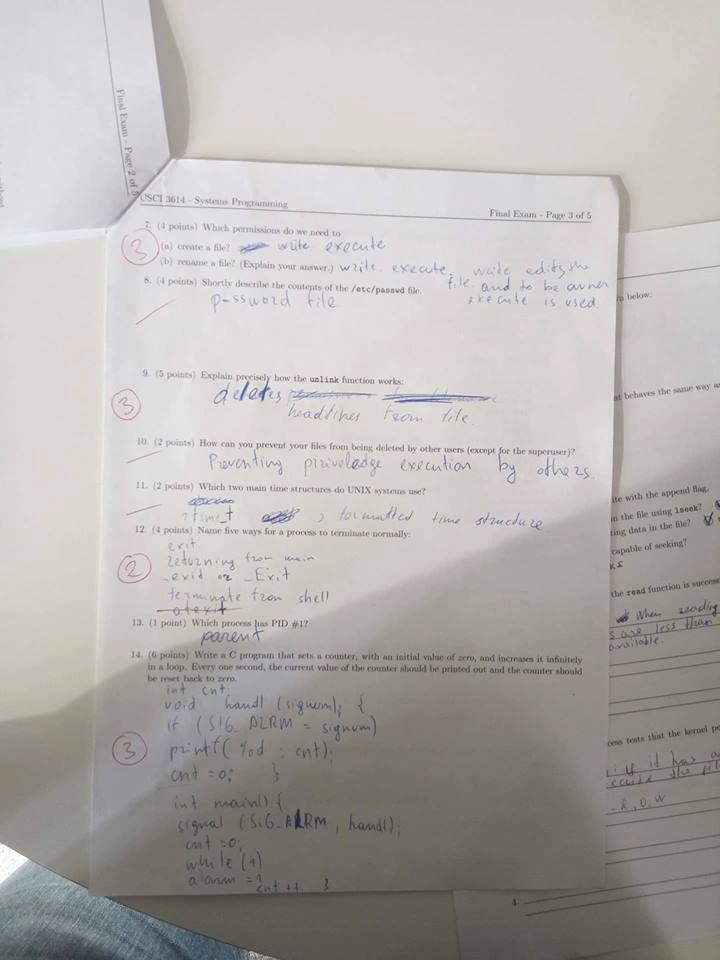 Final Exam - Page 2 of 5
CSCI 3614 - Systems Programming
Final Exam - Page 3 of 5
7. (4 points) Which permissions do we need to
3
(a) create a file? write execute
(b) rename a file? (Explain your answer.) write. execute. write edits the
file. and to be owner
execute is used.
8. (4 points) Shortly describe the contents of the /etc/passwd file.
password file
9. (5 points) Explain precisely how the unlink function works:
3
deletes
headlines from file
10. (2 points) How can you prevent your files from being deleted by other users (except for the superuser)?
Preventing piriveledge execution by others.
11. (2 points) Which two main time structures do UNIX systems use?
time_t , formatted time structure
12. (4 points) Name five ways for a process to terminate normally:
2
exit
returning from main
_exit or _Exit
terminate from shell
atexit
13. (1 point) Which process has PID #1?
parent
14. (6 points) Write a C program that sets a counter, with an initial value of zero, and increases it infinitely
in a loop. Every one second, the current value of the counter should be printed out and the counter should
be reset back to zero.
3
int cnt;
void handl (signum); {
if (SIG_ALRM = signum)
printf( %d ; cnt);
cnt = 0; }
int main() {
signal (SIG_ALRM, handl);
cnt = 0;
while (1)
alarm = 1
cnt ++ }
n below:
at behaves the same way as
ite with the append flag,
n the file using lseek?
ting data in the file?
capable of seeking?
the read function is success
When reading
s are less than
available.
cess tests that the kernel pe
if it has a
- R, O, W
4.